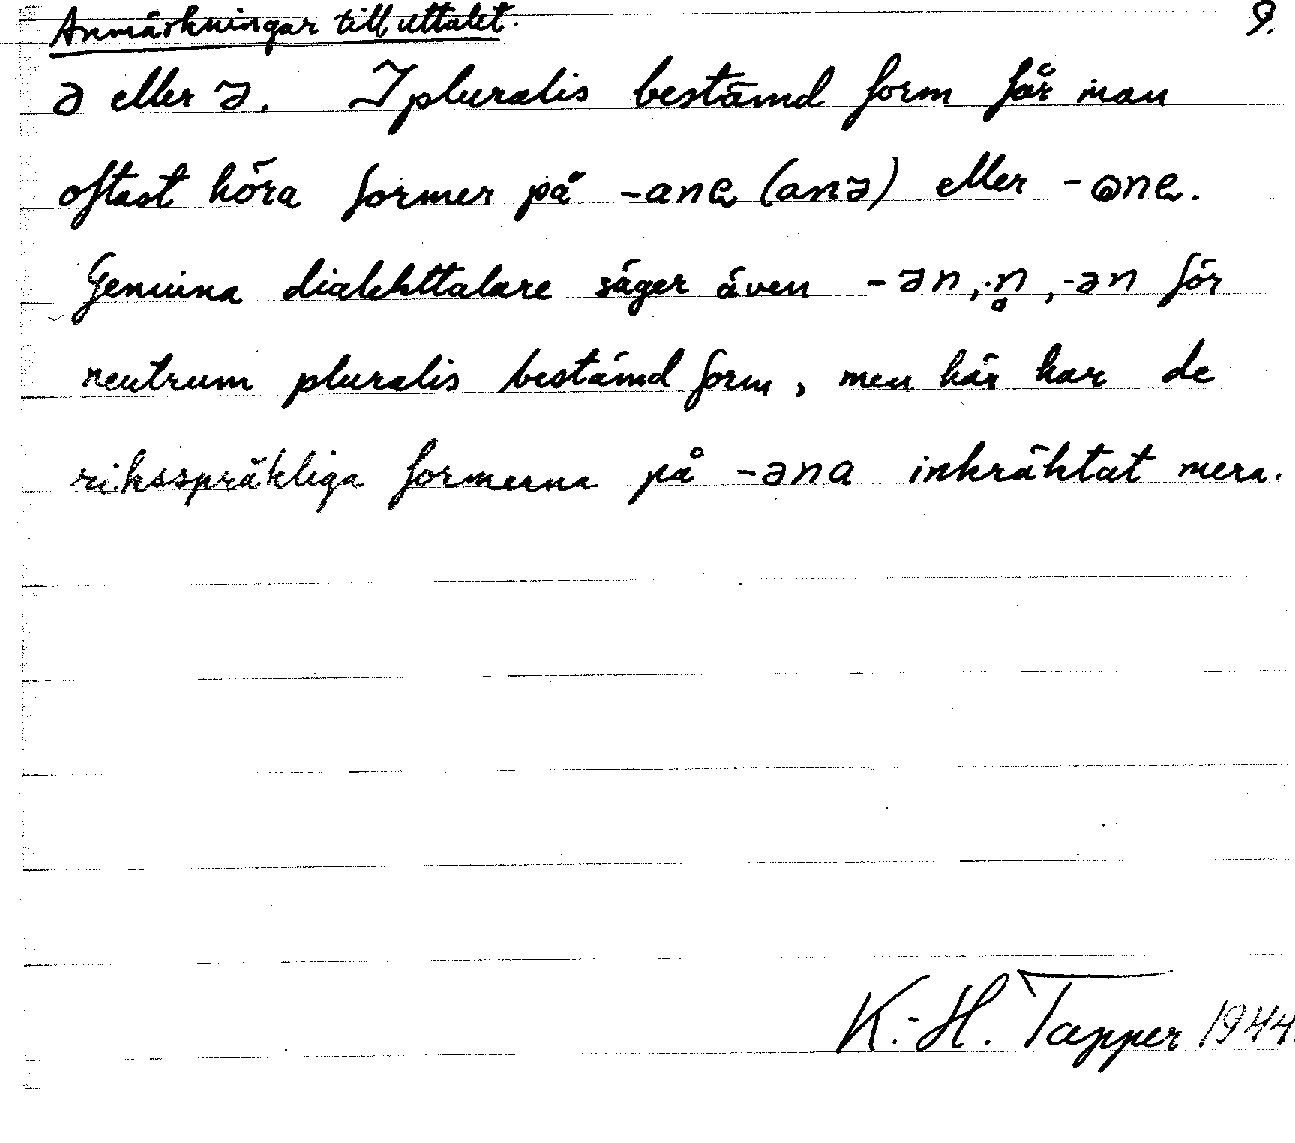 Anmärkningar till uttalet. 9.
ə eller ɘ. I pluralis bestämd form får man
oftast höra former på -ane (anə) eller -ɷne.
Genuina dialekttalare säger även -ən, -n̥, -ən för
neutrum pluralis bestämd form, men här har de
riksspråkliga formerna på -əna inkräktat mera.
K.-H. Tapper 1944.